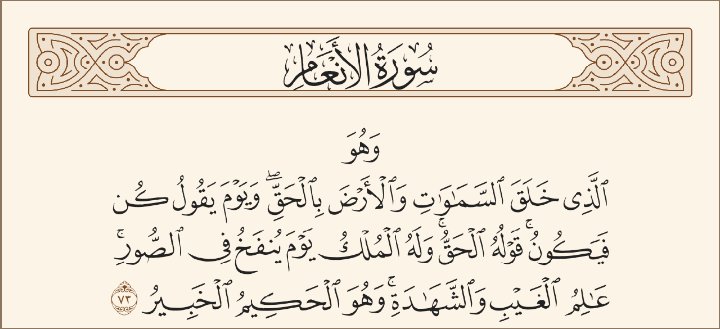 سُورَةُ الأَنْعَامِ
وَهُوَ
ٱلَّذِى خَلَقَ ٱلسَّمَـٰوَٰتِ وَٱلْأَرْضَ بِٱلْحَقِّ ۖ وَيَوْمَ يَقُولُ كُن
فَيَكُونُ ۚ قَوْلُهُ ٱلْحَقُّ ۚ وَلَهُ ٱلْمُلْكُ يَوْمَ يُنفَخُ فِى ٱلصُّورِ ۚ
عَـٰلِمُ ٱلْغَيْبِ وَٱلشَّهَـٰدَةِ ۚ وَهُوَ ٱلْحَكِيمُ ٱلْخَبِيرُ ٧٣